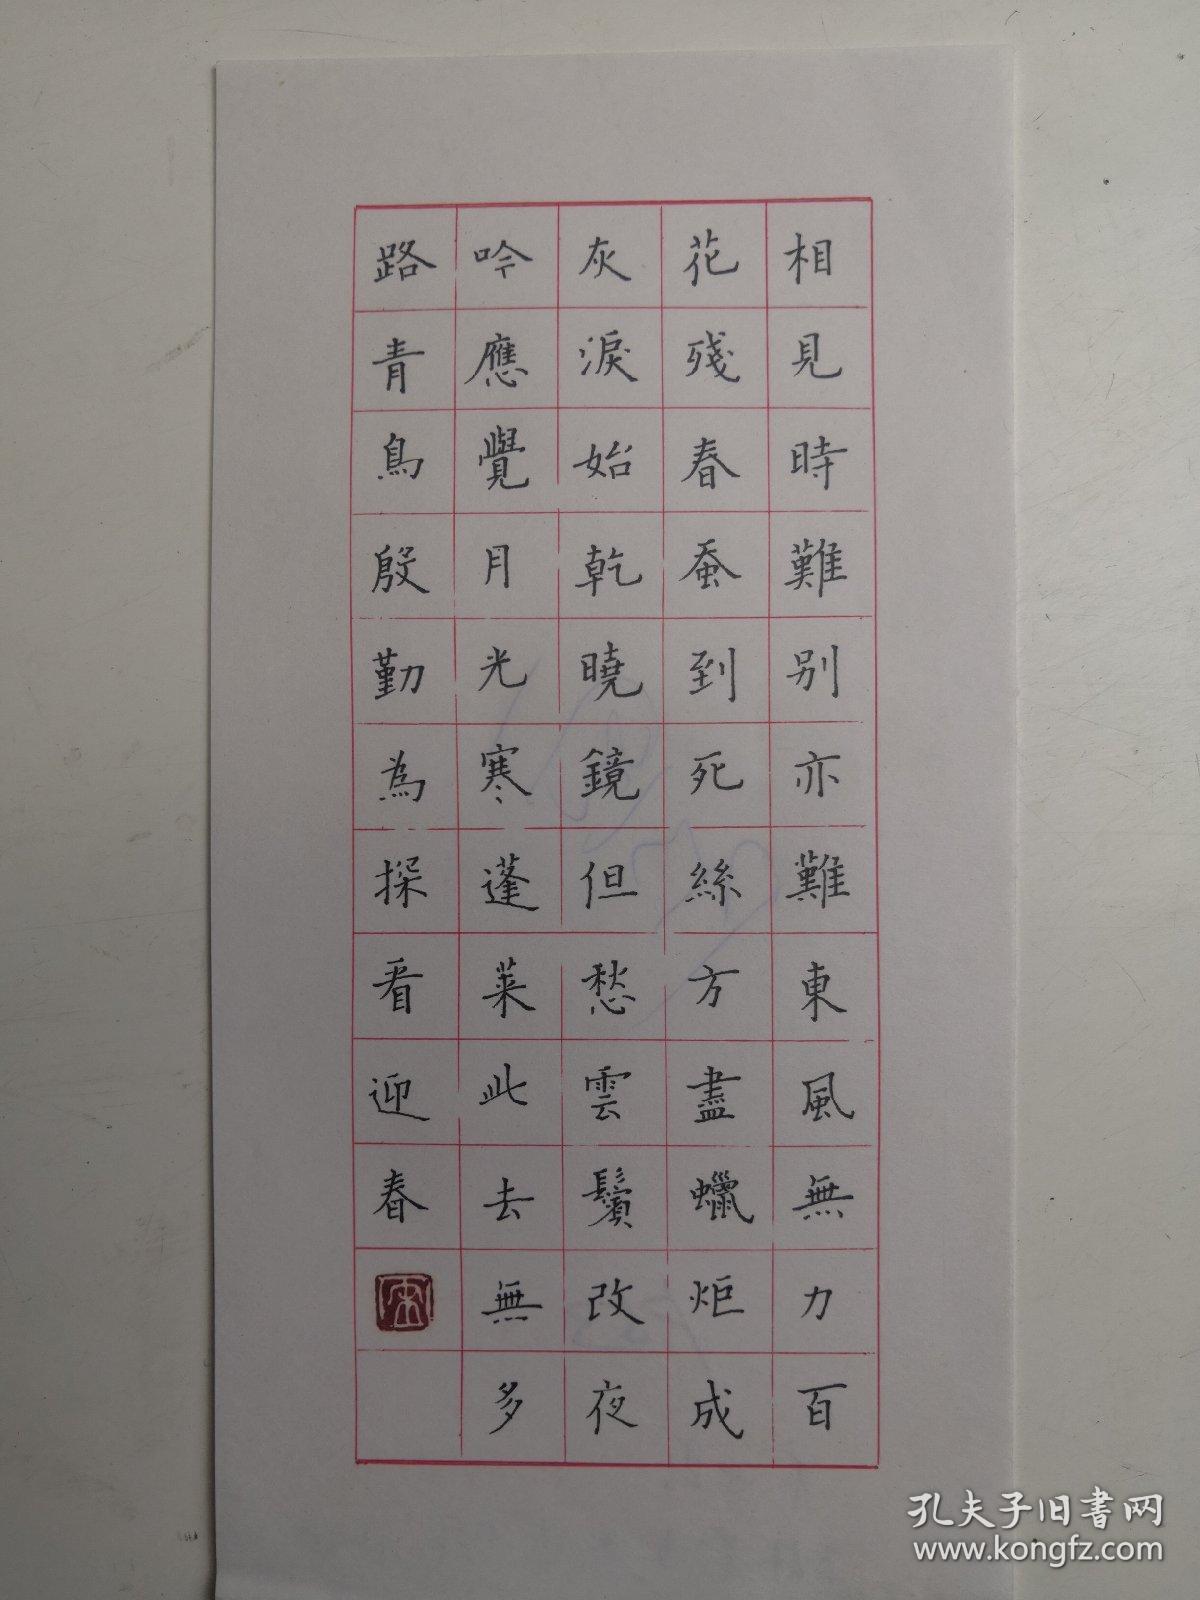 相見時難别亦難東風無力百
花殘春蚕到死絲方盡蠟炬成
灰淚始乾曉鏡但愁雲鬢改夜
吟應覺月光寒蓬萊此去無多
路青鳥殷勤為探看迎春
孔夫子旧书网
www.kongfz.com